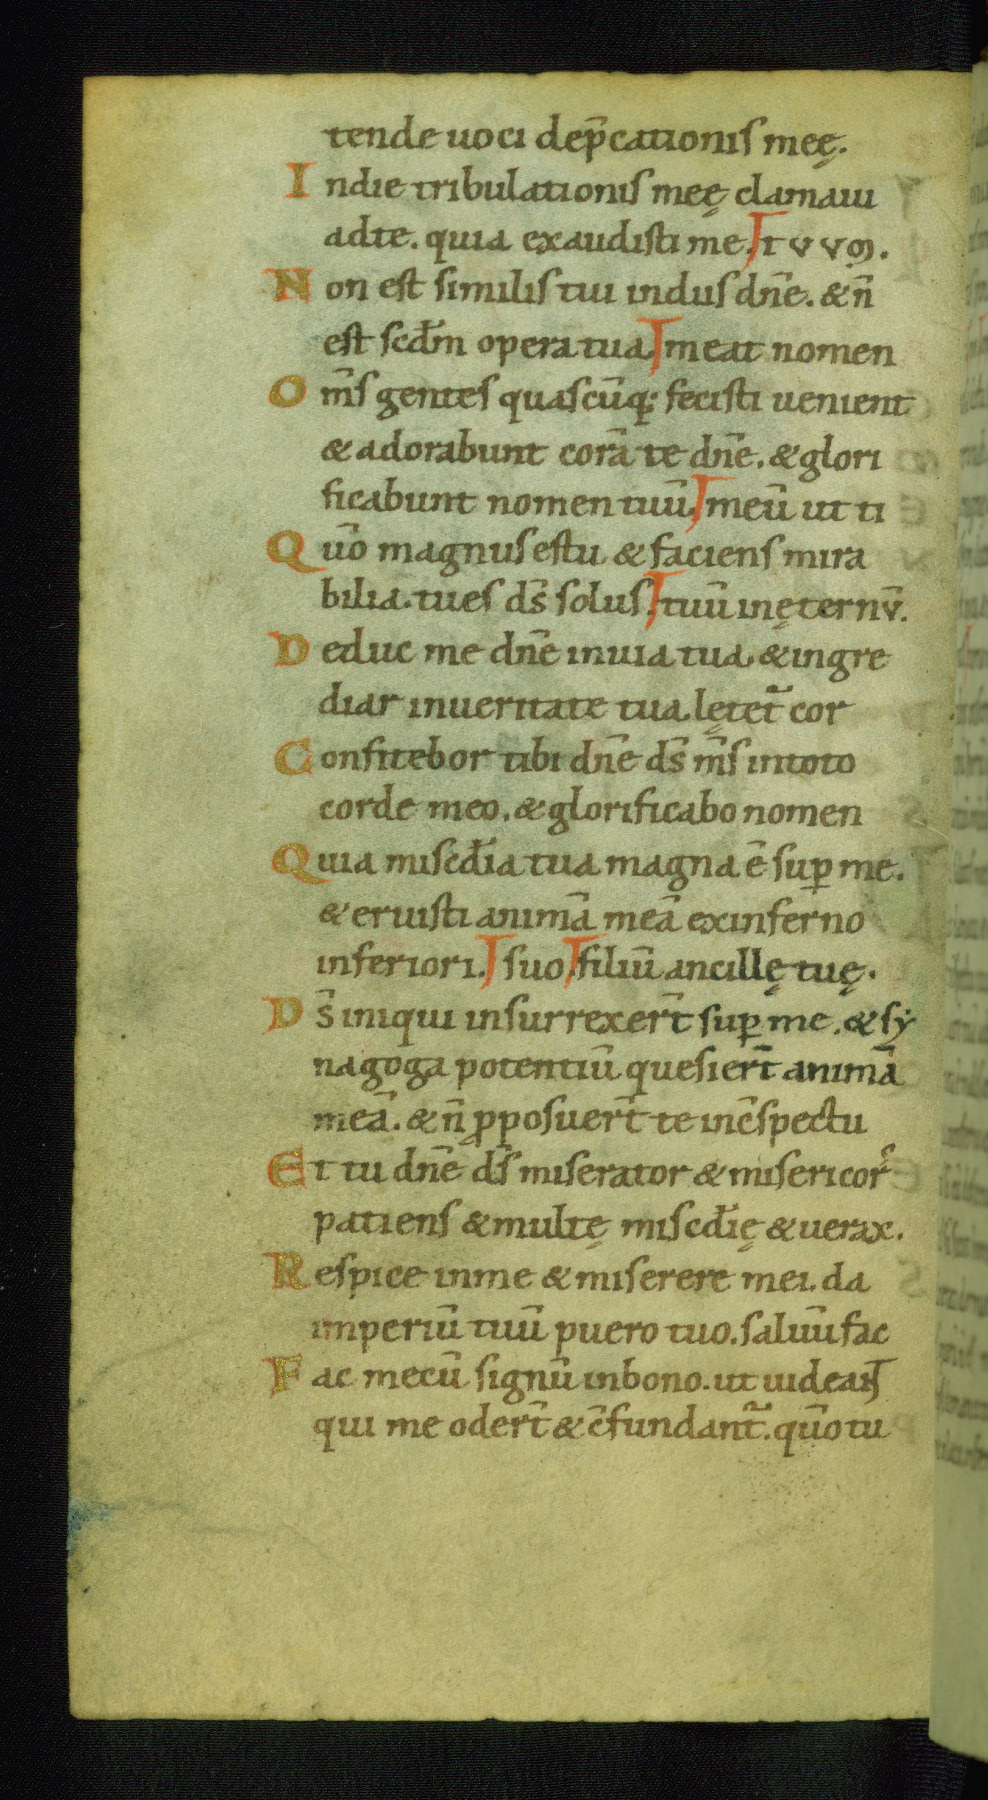 tende uoci dep̄cationis meę.
Indie tribulationis meę clamaui
adte. quia exaudisti me. tuum.
Non est similis tui indiis dn̄e. & n̄
est scd̄m opera tua. meat nomen
Om̄s gentes quascūq; fecisti uenient
& adorabunt corā te dn̄e. & glori
ficabunt nomen tuū. meū ut ti
Qūo magnus estu & faciens mira
bilia. tu es ds̄ solus. tuū inęternū.
Deduc me dn̄e inuia tua. & ingre
diar inueritate tua. lętet̄ cor
Confitebor tibi dn̄e ds̄ m̄s intoto
corde meo. & glorificabo nomen
Quia miscd̄ia tua magna ē suꝑ me.
& eruisti animā meā exinferno
inferiori. suo. filiū ancillę tuę.
Ds̄ iniqui insurrexer̄t suꝑ me. & sẏ
nagoga potentiū quesier̄t animā
meā. & n̄ ꝓposuer̄t te inc̄spectu
Et tu dn̄e ds̄ miserator & misericors
patiens & multę miscd̄ię & uerax.
Respice inme & miserere mei. da
imperiū tuū puero tuo. saluū fac
Fac mecū signū inbono. ut uideant
qui me oder̄t & c̄fundant̄. qūo tu